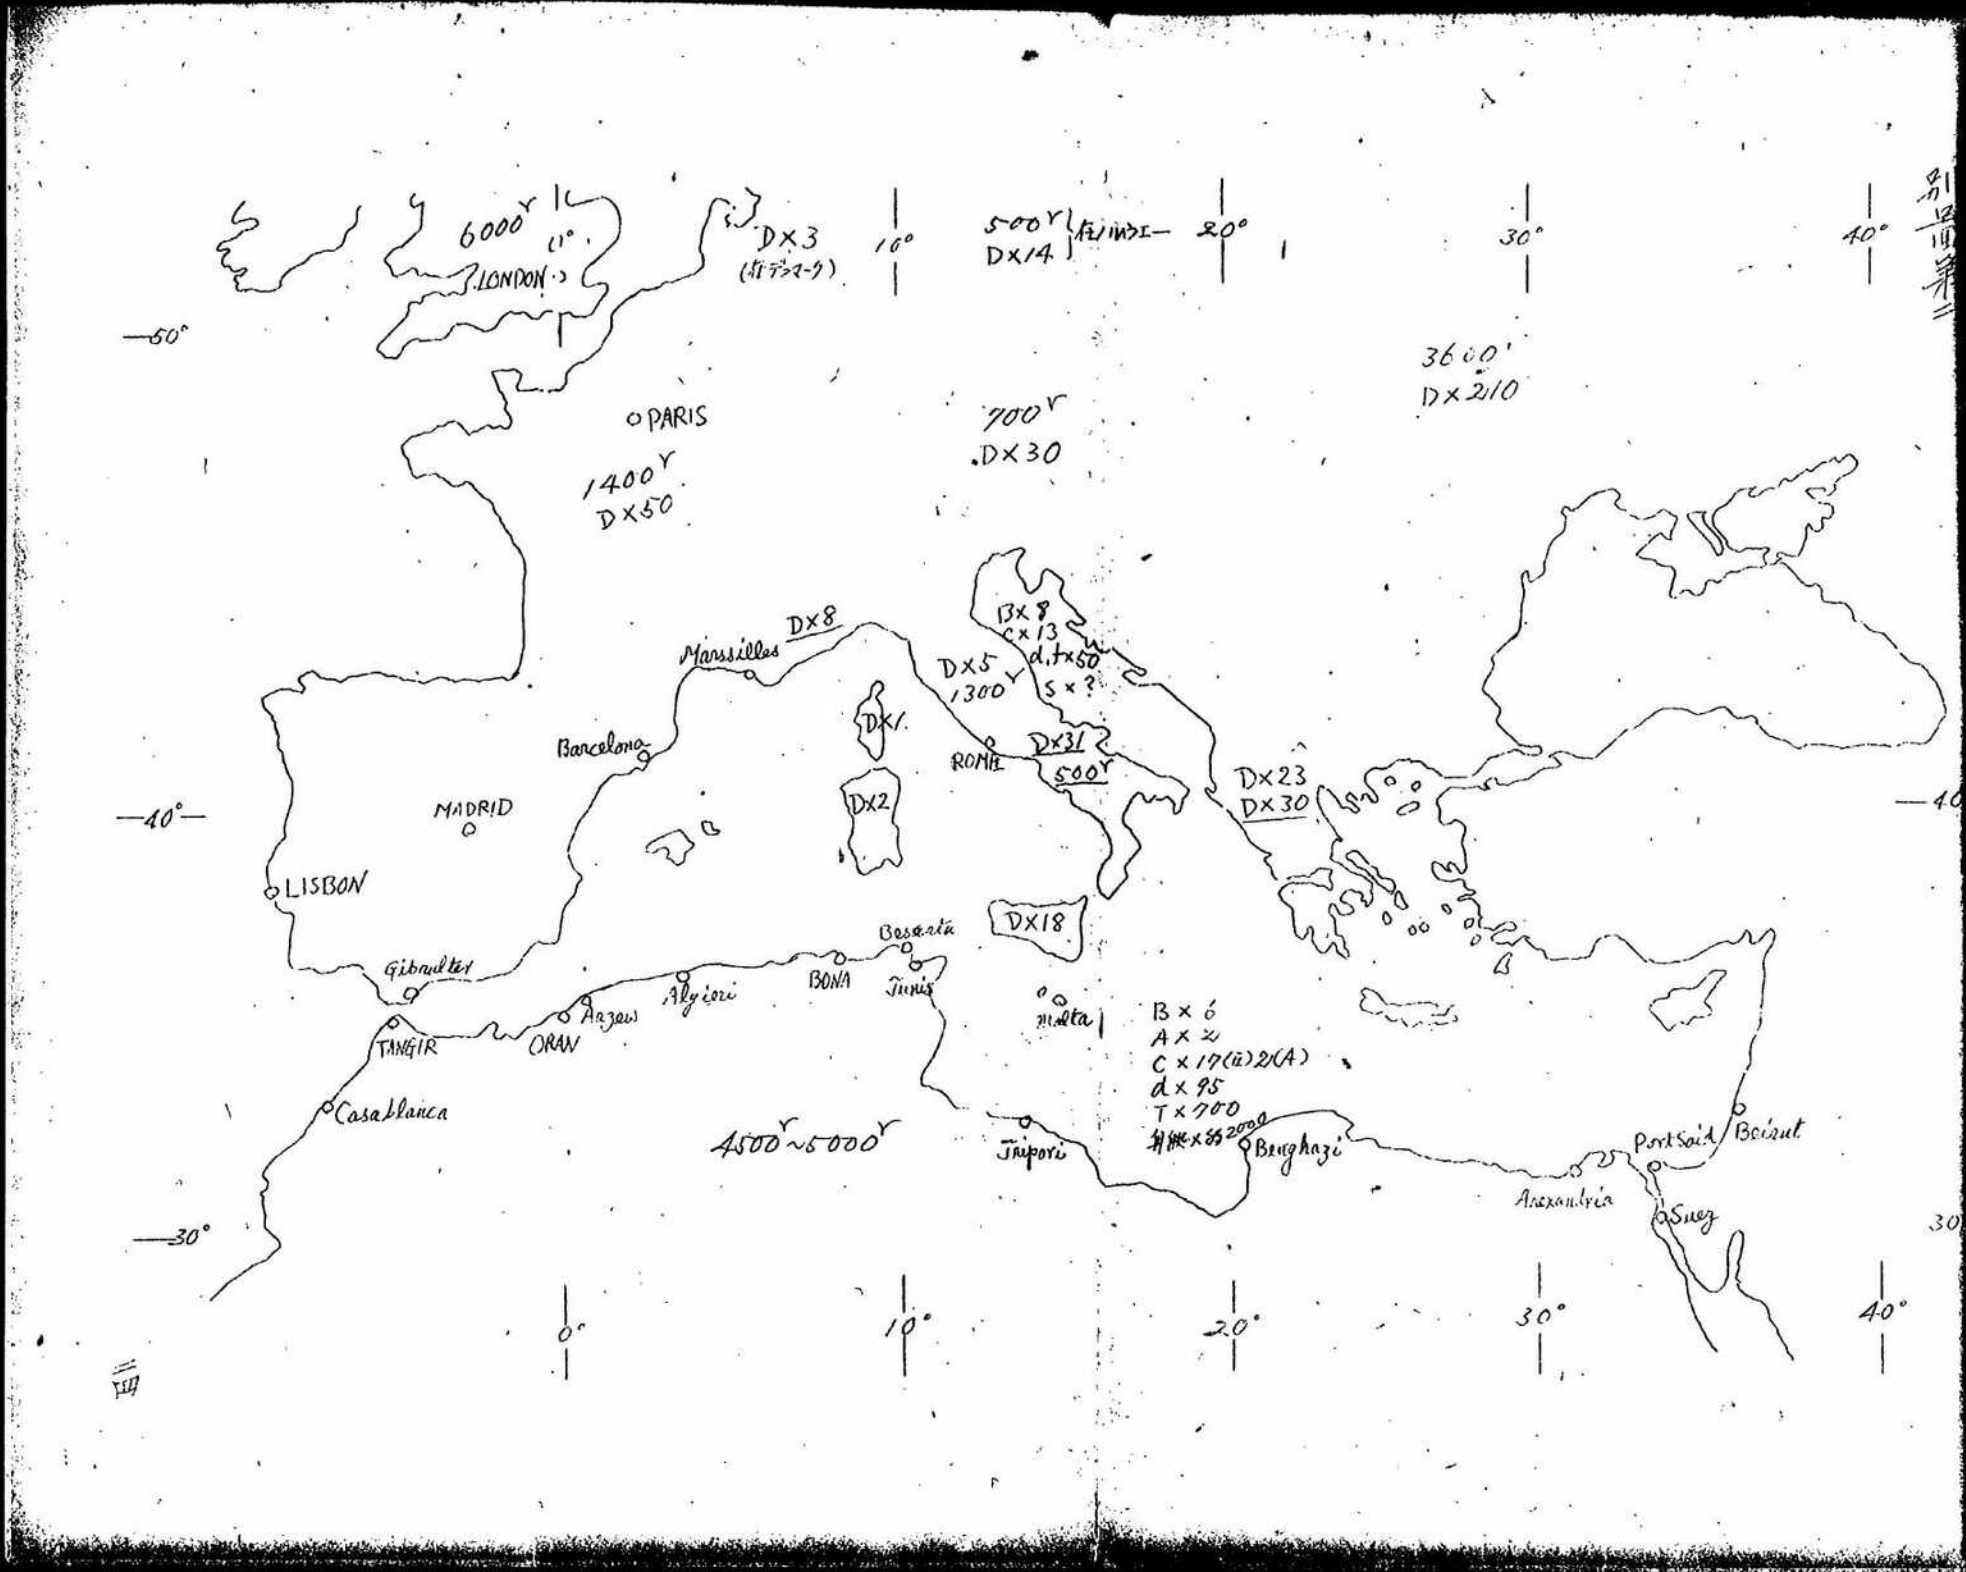 別図第二
6000r
0°
LONDON
D×3
(在デンマーク)
10°
500r
D×14
在ノルウエー
20°
30°
40°
50°
3600r
D×210
PARIS
700r
D×30
1400r
D×50
D×8
Marssilles
B×8
C×13
d,t×50
S×?
D×5
1300r
D×1
Barcelona
ROMA
D×31
500r
D×2
D×23
D×30
40°
MADRID
40
LISBON
D×18
Beserta
Gibraulter
BONA
Tunis
Algieri
Arzew
ORAN
TANGIR
Malta
B×6
A×2
C×17(巨)2(A)
d×95
T×700
Casablanca
4500r~5000r
Tripori
Benghazi
Port Said
Beirut
Arexandria
Suez
30°
30
0°
10°
20°
30°
40°